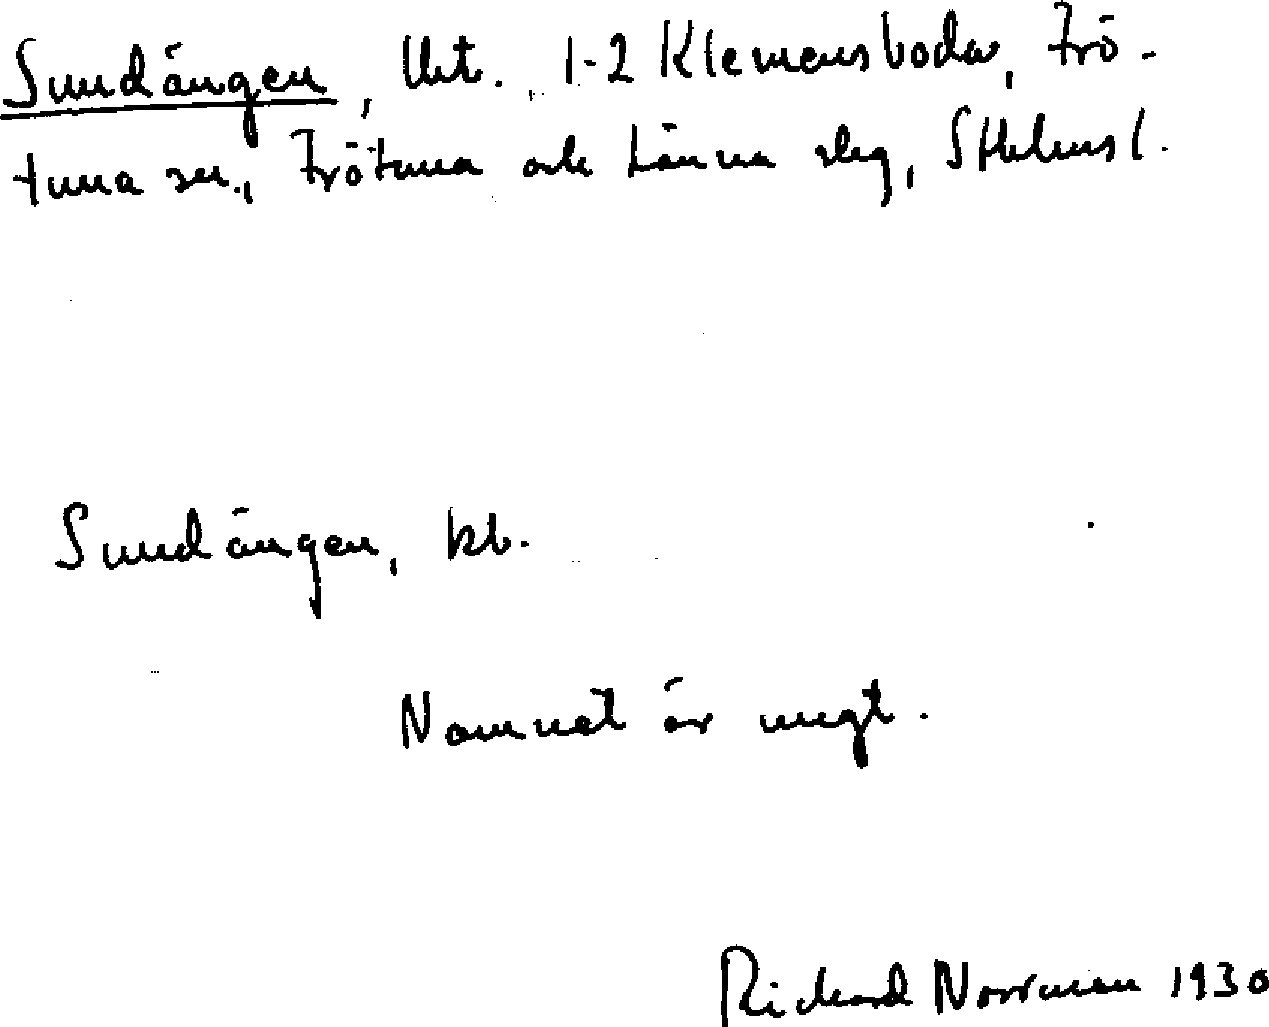 Sundängen, Utt. 1-2 Klemensboda, Frö-
tuna sn., Frötuna och Länna slg, Sthlms l.
Sundängen, kb.
Namnet är ungt.
Richard Norrman 1930